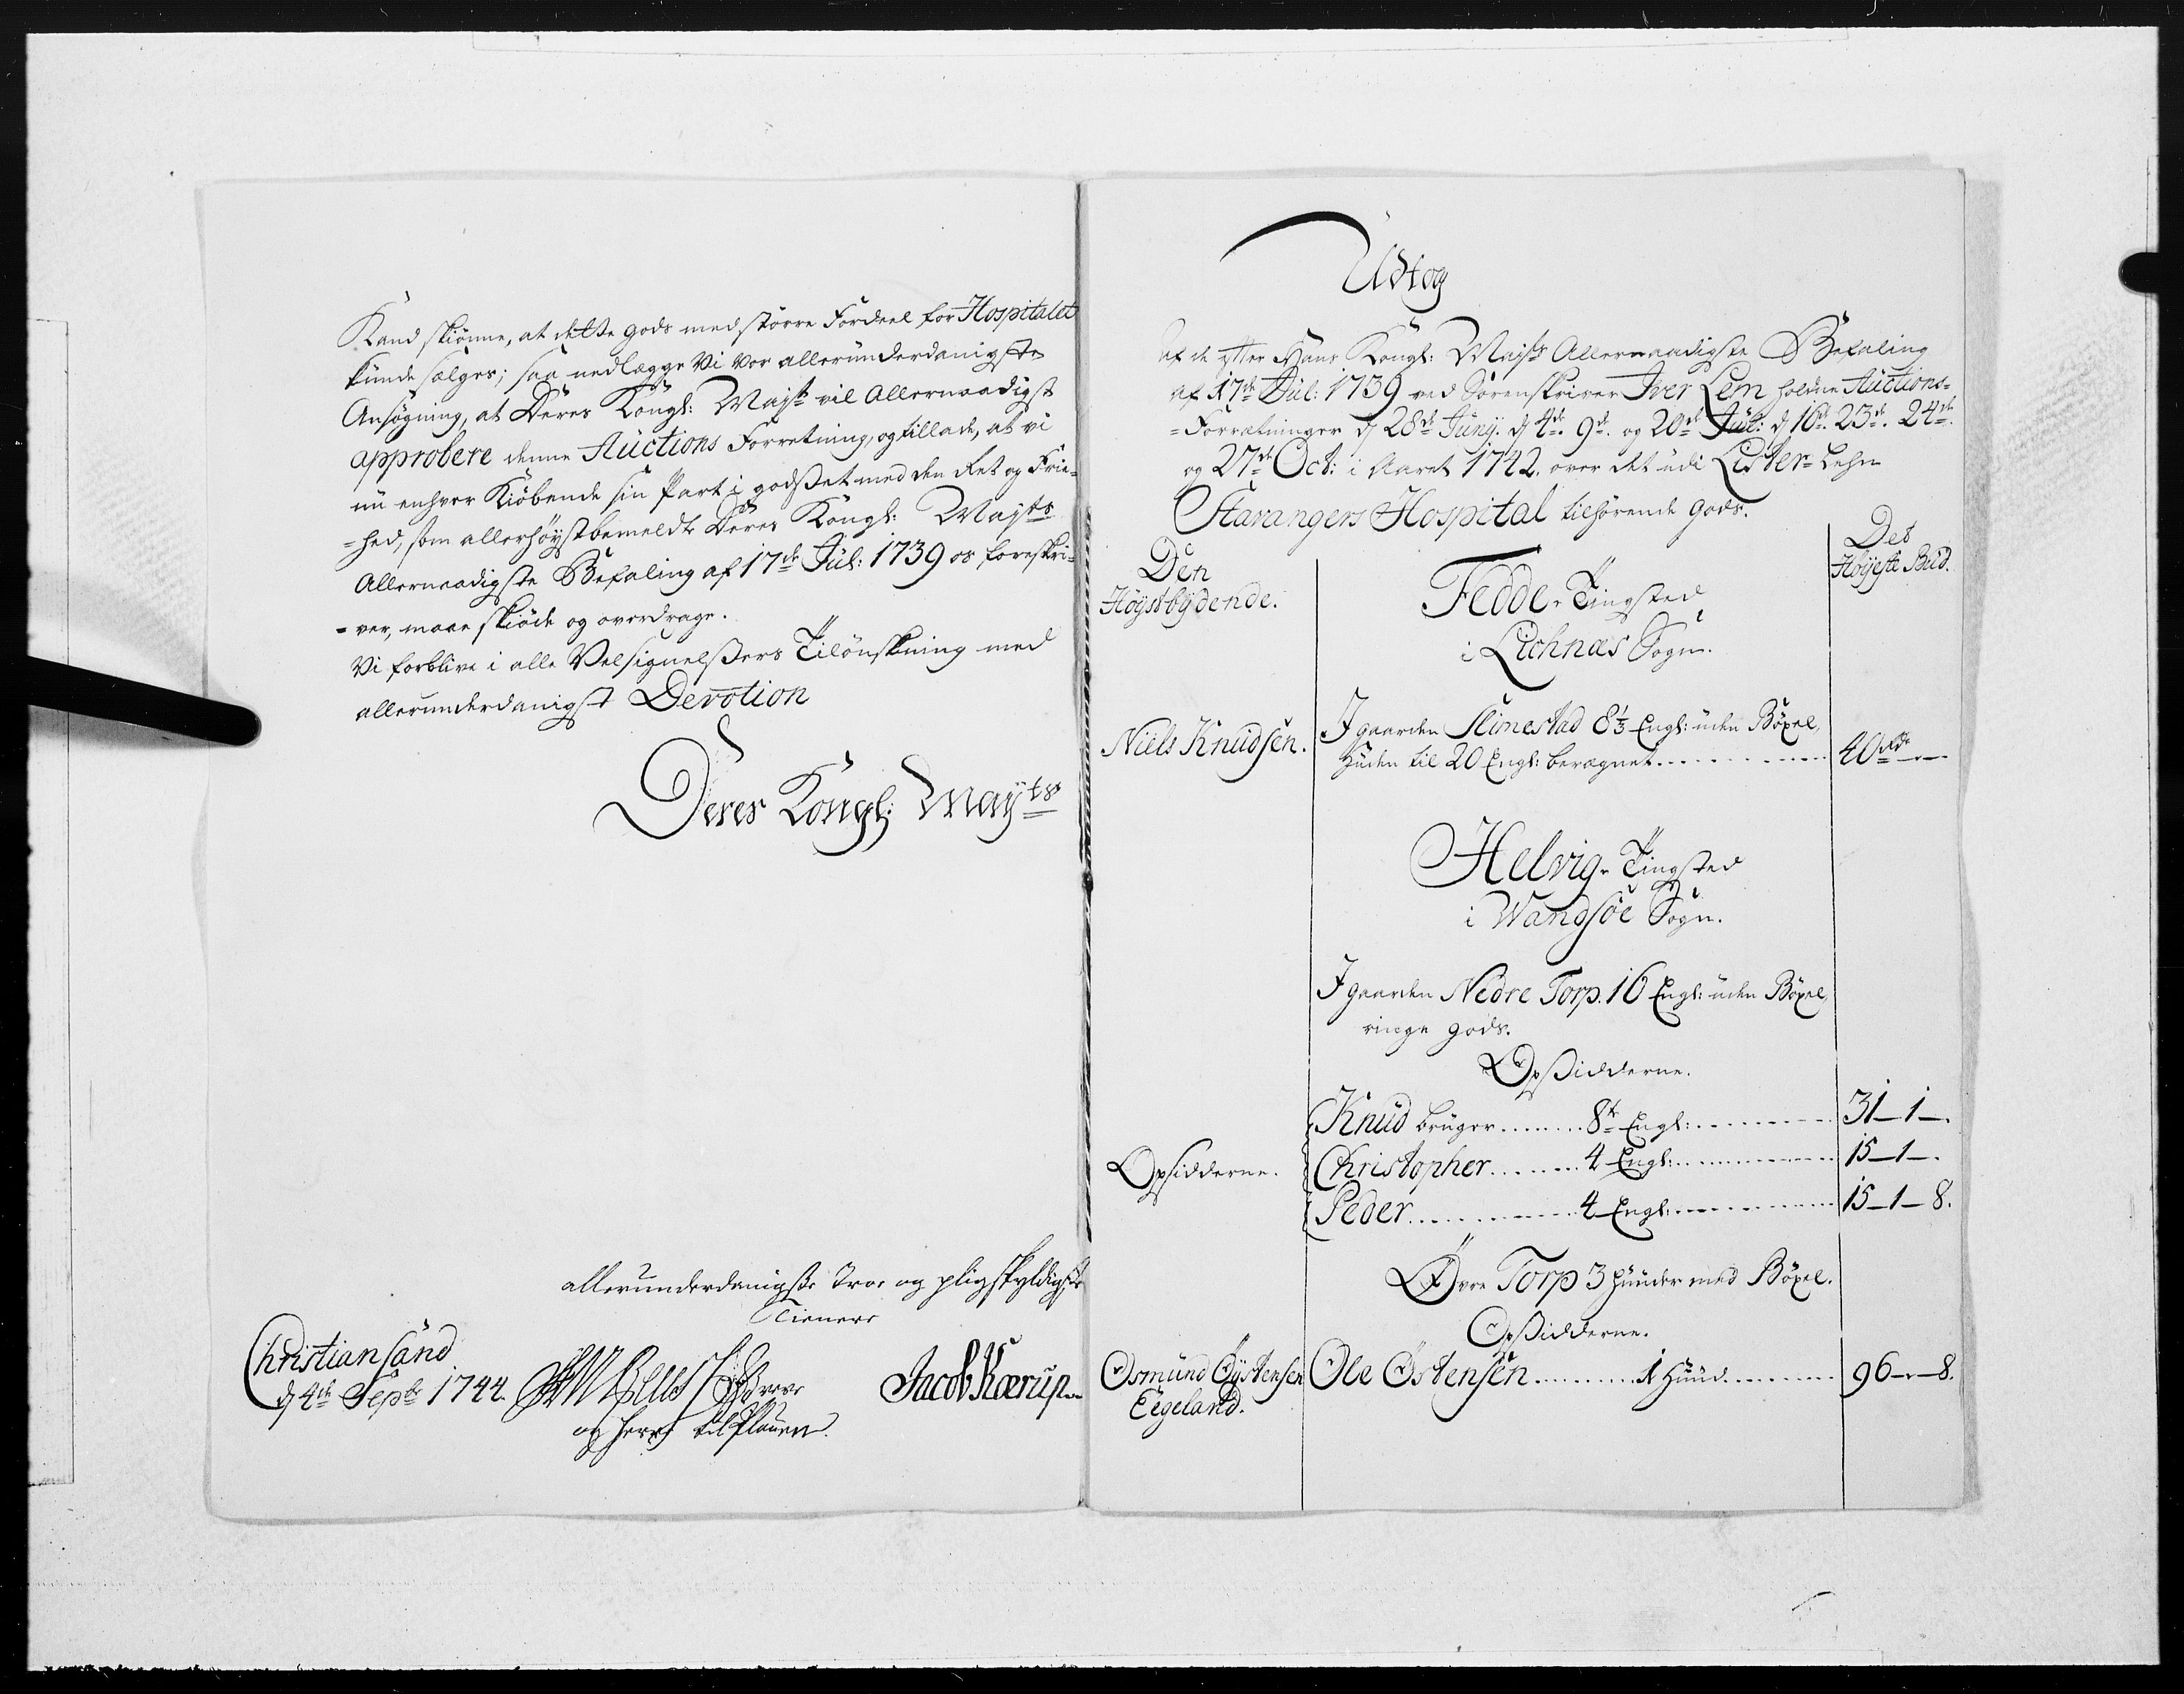 Kand skiønne, at dette gods med større Fordeel for Hospitalet
kunde sælges; saa nedlægge Vi vor allerunderdanigste
Ansøgning, at Deres Kongl: Mayst vil Allernaadigst
approbere denne Auctions Forretning, og tillade, at vi
nu enhver Kiøbende sin Part i godsset med den Ret og Frie-
=hed, som allerhøystbemeldte Deres Kongl: Mayts
Allernaadigste Befaling af 17de Jul: 1739 os foreskri-
=ver, maae skiøde og overdrage.
Vi forblive i alle Velsignelssers Tilønskning med
allerunderdanigst Devotion
Deres Kongl: Mayts
allerunderdanigste Troe og pligskyldigste
Tienere
Christiansand
d 4de Septr 1744.
og Herre til
Jacob Kærup
Udtog
Af de efter Hans Kongl: Mayts Allernaadigste Befaling
af 17de Jul: 1739 ved Sorenskriver Iver Lem holdne Auctions-
=Forretninger d 28de Juny. d 4de 9de. og 20de Jul: d 16de. 23de. 24de.
og 27de Oct: i Aaret 1742. over det udi Lister-Lehn
Stavangers Hospital tilhørende gods.
Den
Høystbydende.
Det
Høyeste Bud.
Fedde-Tingsted
i Liehnæs Sogn.
Niels Knudsen.
I gaarden Slimestad 8 1/3 Engl: uden Bøxel,
Huden til 20 Engl: beregnet
40 Rdr
Helvig-Tingsted
i Wandsøe Sogn.
I gaarden Nedre Torp. 16 Engl: uden Bøxel,
ringe gods.
Opsidderne.
Opsidderne.
Knud bruger ........ 8te Engl: ........ 31-1-.
Christopher ....... 4 Engl: ........ 15-1-.
Peder ........ 4 Engl: ........ 15-1-8.
Øvre Torp 3 Huuder med Bøxel.
Opsidderne.
Osmund Øystensen Ole Østensen ........ 1 Huud ........ 96-"-8.
Eegeland.